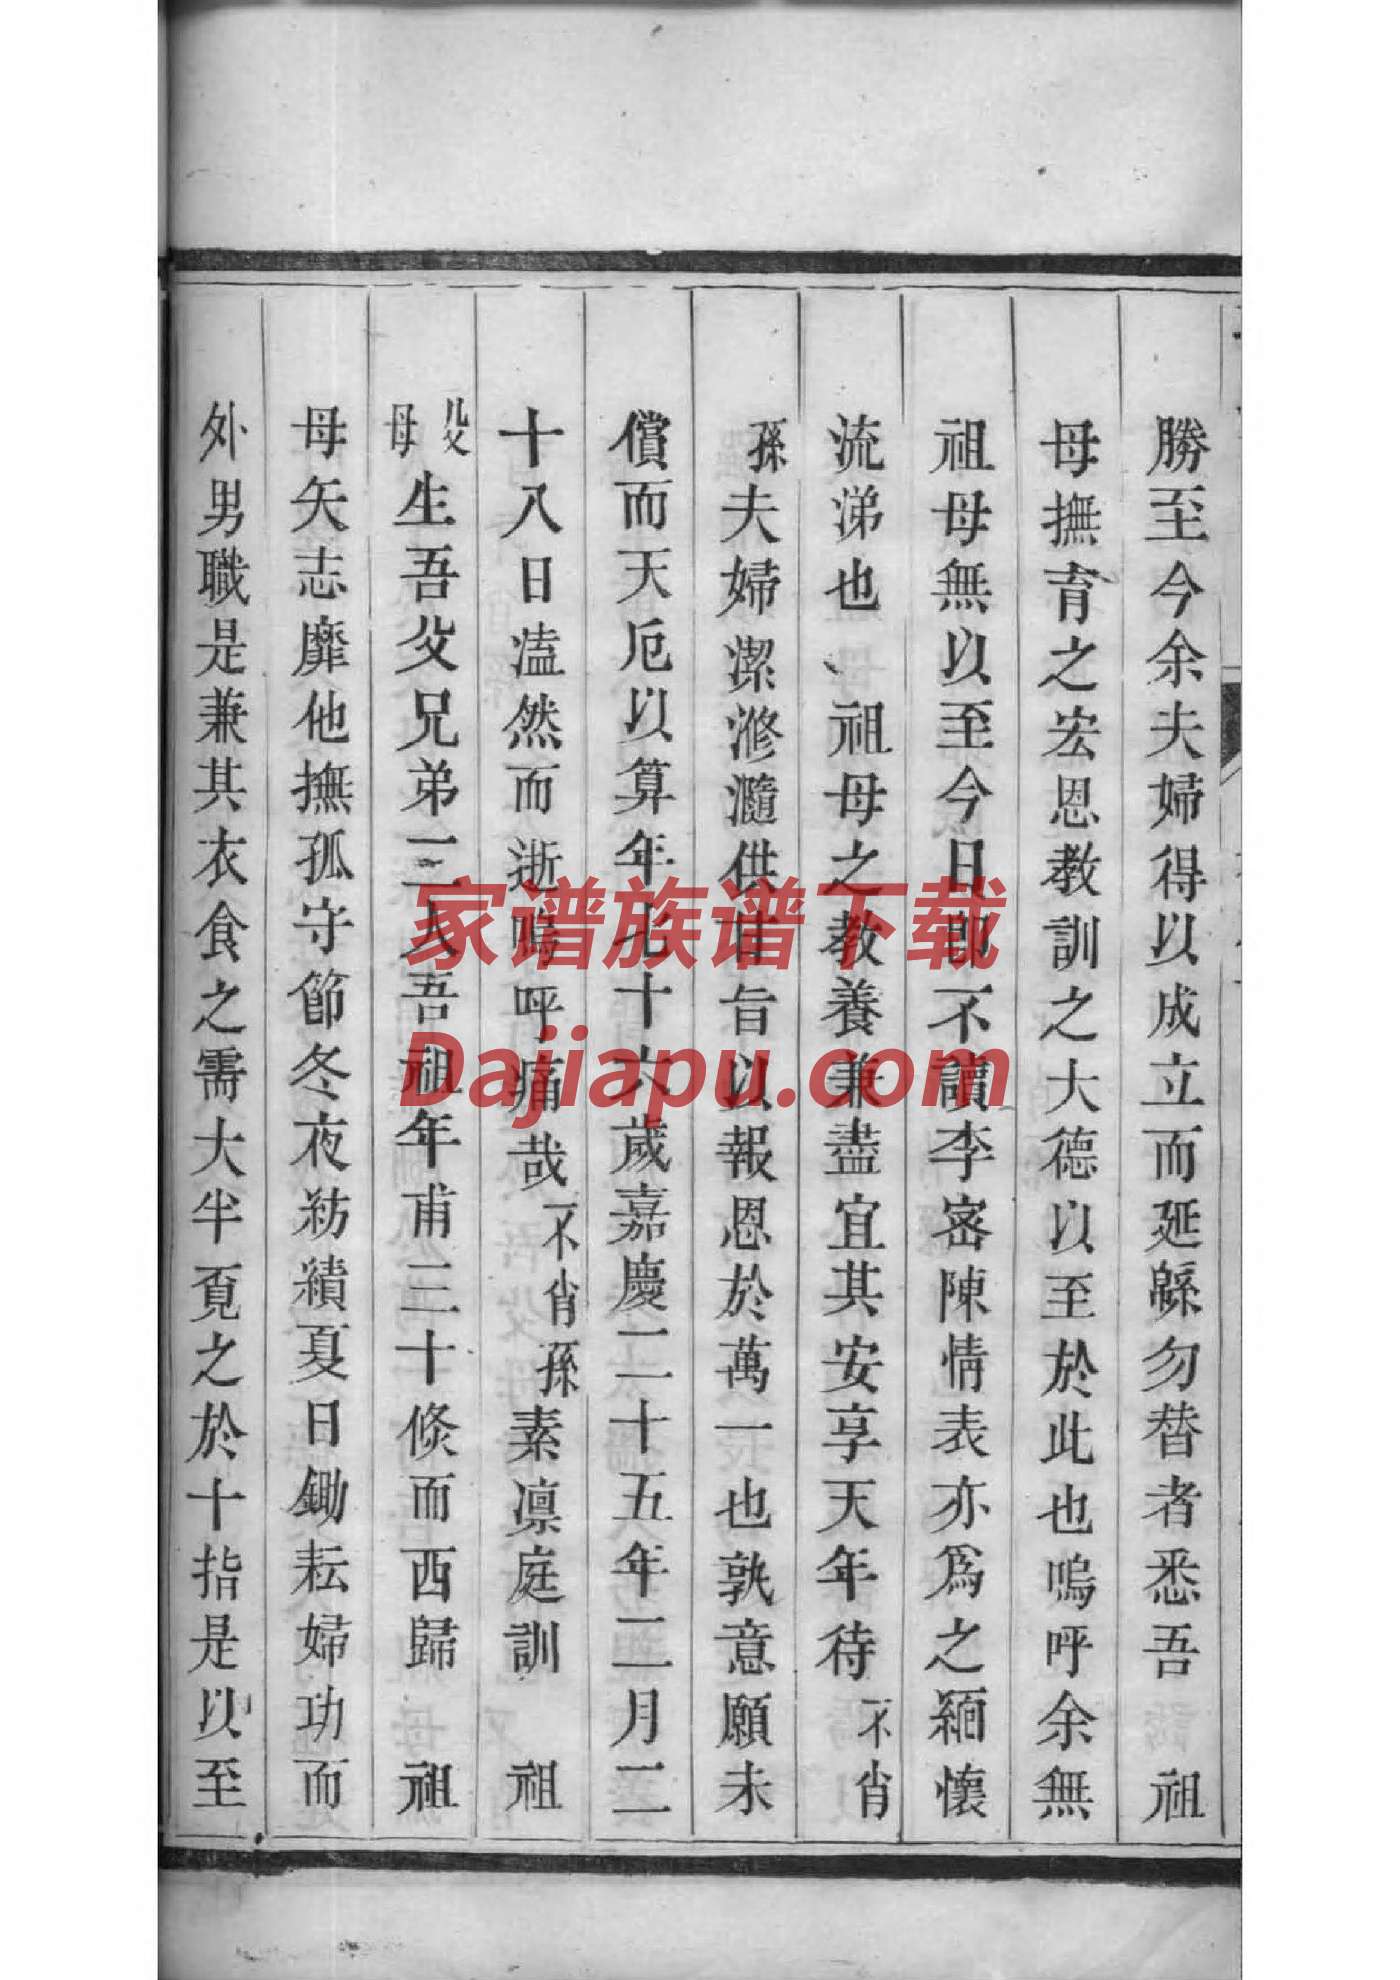 勝至今余夫婦得以成立而延緜勿替者悉吾 祖
母撫育之宏恩教訓之大德以至於此也嗚呼余無
祖母無以至今日卽不讀李密陳情表亦爲之緬懷
流涕也 祖母之教養兼盡宜其安享天年待不肖
孫夫婦潔滫瀡供甘旨以報恩於萬一也孰意願未
償而天厄以算年七十六歲嘉慶二十五年二月二
十八日溘然而逝嗚呼痛哉不肖孫素凛庭訓 祖
父母生吾父兄弟二人吾祖年甫三十倐而西歸 祖
母矢志靡他撫孤守節冬夜紡績夏日鋤耘婦功而
外男職是兼其衣食之需大半覔之於十指是以至
家谱族谱下载
Dajiapu.com